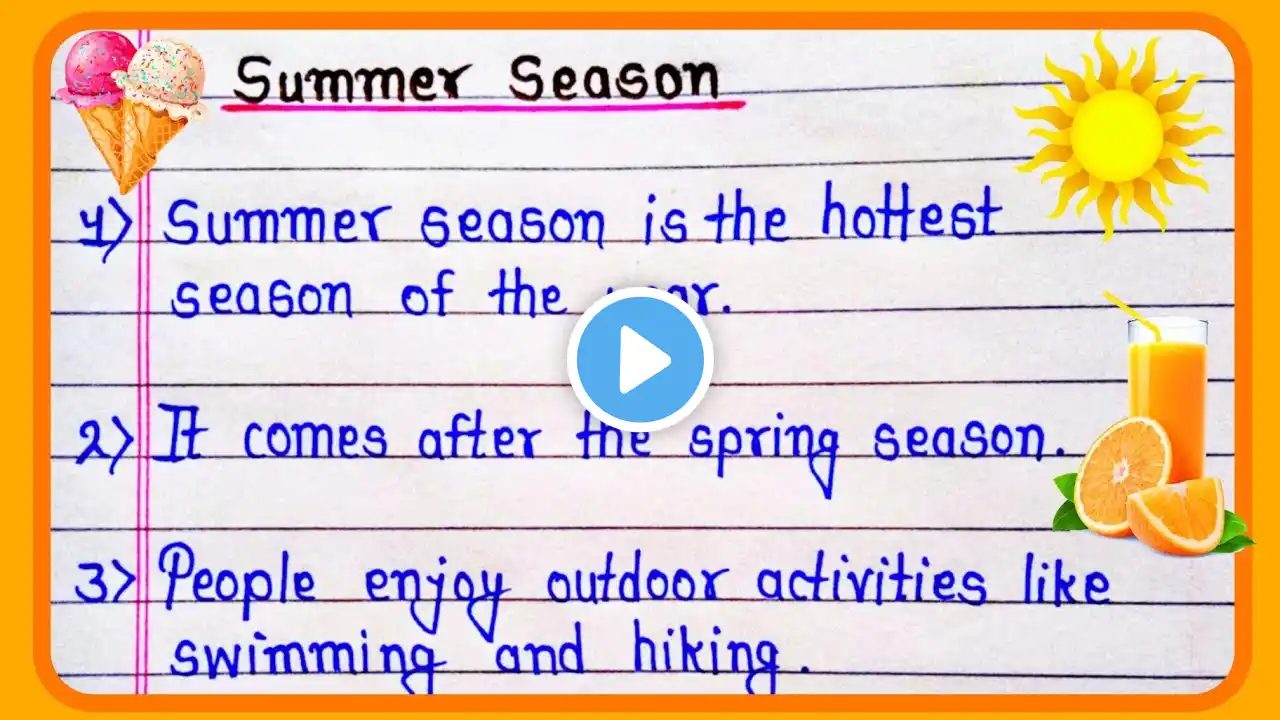 Summer Season
1) Summer season is the hottest
season of the year.
2) It comes after the spring season.
3) People enjoy outdoor activities like
swimming and hiking.